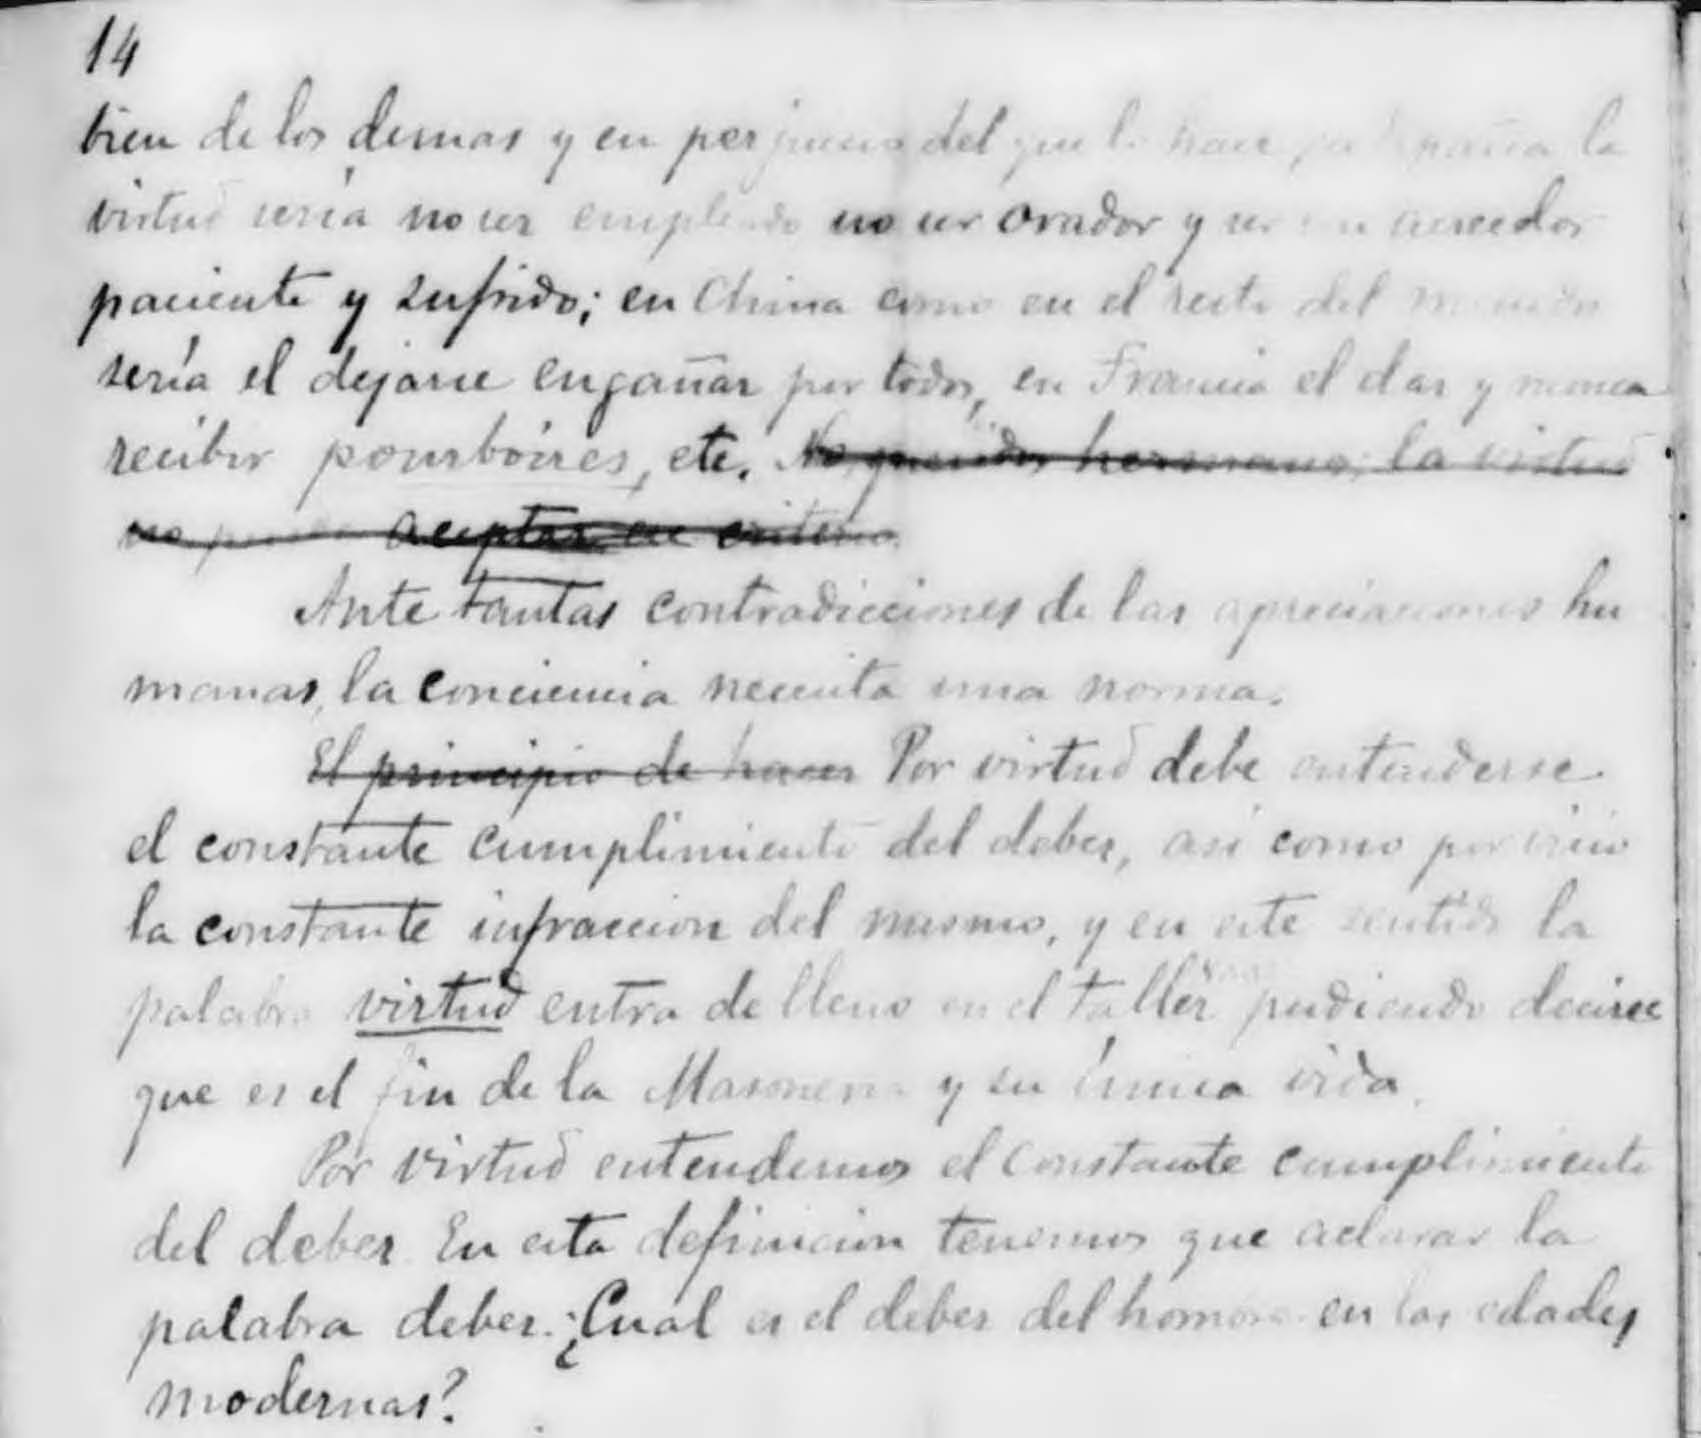 14
bien de los demas y en perjuicio del que lo hace, en España la
virtud sería no ser empleado no ser orador y ser un acreedor
paciente y sufrido; en China como en el resto del mundo
sería el dejarse engañar por todos, en Francia el dar y nunca
recibir pourboires, etc. No, queridos hermanos, la virtud
no puede aceptar ese criterio.
Ante tantas contradicciones de las apreciaciones hu
manas, la conciencia necesita una norma.
El principio de hacer Por virtud debe entenderse
el constante cumplimiento del deber, asi como por vicio
la constante infraccion del mismo, y en este sentido la
palabra virtud entra de lleno en el taller pudiendo decirse
que es el fin de la Masoneria y su única vida.
Por virtud entendemos el constante cumplimiento
del deber. En esta definicion tenemos que aclarar la
palabra deber. ¿Cual es el deber del hombre en las edades
modernas?